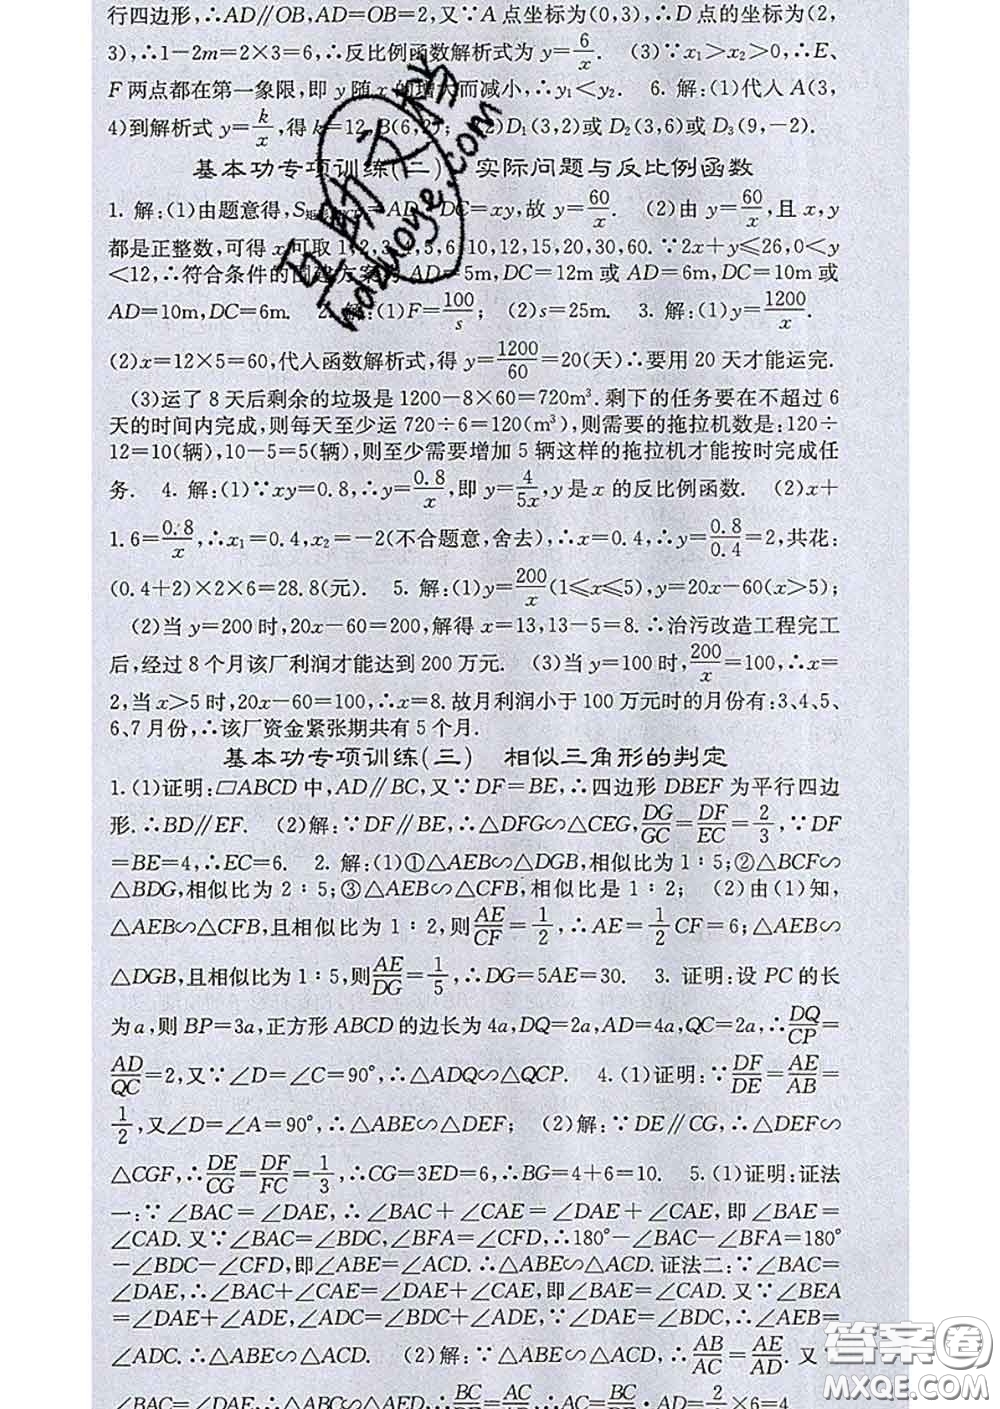 行四边形,∴AD∥OB,AD=OB=2,又∵A点坐标为(0,3),∴D点的坐标为(2,
3),∴1-2m=2×3=6,∴反比例函数解析式为 y=6/x. (3)∵x₁>x₂>0,∴E、
F两点都在第一象限,即y随x的增大而减小,∴y₁<y₂. 6. 解:(1)代入A(3,
4)到解析式 y=k/x,得k=12,B(6,2); (2)D₁(3,2)或D₂(3,6)或D₃(9,-2).
基本功专项训练(二) 实际问题与反比例函数
1. 解:(1)由题意得,S =AD DC=xy,故 y=60/x. (2)由 y=60/x,且x,y
都是正整数,可得x可取1,2,3,4,5,6,10,12,15,20,30,60.∵2x+y≤26,0<y
<12,∴符合条件的围建方案为AD=5m,DC=12m或AD=6m,DC=10m或
AD=10m,DC=6m. 2. 解:(1)F=100/s; (2)s=25m. 3. 解:(1)y=1200/x.
(2)x=12×5=60,代入函数解析式,得 y=1200/60=20(天)∴要用20天才能运完.
(3)运了8天后剩余的垃圾是1200-8×60=720m³. 剩下的任务要在不超过6
天的时间内完成,则每天至少运720÷6=120(m³),则需要的拖拉机数是:120÷
12=10(辆),10-5=5(辆),则至少需要增加5辆这样的拖拉机才能按时完成任
务. 4. 解:(1)∵xy=0.8,∴y=0.8/x,即 y=4/5x,y是x的反比例函数. (2)x+
1.6=0.8/x,∴x₁=0.4,x₂=-2(不合题意,舍去),∴x=0.4,∴y=0.8/0.4=2,共花:
(0.4+2)×2×6=28.8(元). 5. 解:(1)y=200/x(1≤x≤5),y=20x-60(x>5);
(2)当y=200时,20x-60=200,解得x=13,13-5=8.∴治污改造工程完工
后,经过8个月该厂利润才能达到200万元. (3)当y=100时,200/x=100,∴x=
2,当x>5时,20x-60=100,∴x=8.故月利润小于100万元时的月份有:3、4、5、
6、7月份,∴该厂资金紧张期共有5个月.
基本功专项训练(三) 相似三角形的判定
1. (1)证明:▱ABCD中,AD∥BC,又∵DF=BE,∴四边形DBEF为平行四边
形.∴BD∥EF. (2)解:∵DF∥BE,∴△DFG∽△CEG,DG/GC=DF/EC=2/3,∵DF
=BE=4,∴EC=6. 2. 解:(1)①△AEB∽△DGB,相似比为1∶5;②△BCF∽
△BDG,相似比为2∶5;③△AEB∽△CFB,相似比是1∶2; (2)由(1)知,
△AEB∽△CFB,且相似比为1∶2,则AE/CF=1/2,∴AE=1/2CF=6;△AEB∽
△DGB,且相似比为1∶5,则AE/DG=1/5,∴DG=5AE=30. 3. 证明:设PC的长
为a,则BP=3a,正方形ABCD的边长为4a,DQ=2a,AD=4a,QC=2a,∴DQ/CP=
AD/QC=2,又∵∠D=∠C=90°,∴△ADQ∽△QCP. 4. (1)证明:∵DF/DE=AE/AB=
1/2,又∠D=∠A=90°,∴△ABE∽△DEF; (2)解:∵DE∥CG,∴△DEF∽
△CGF,∴DE/CG=DF/FC=1/3,∴CG=3ED=6,∴BG=4+6=10. 5. (1)证明:证法
一:∵∠BAC=∠DAE,∴∠BAC+∠CAE=∠DAE+∠CAE,即∠BAE=
∠CAD. 又∵∠BAC=∠BDC,∠BFA=∠CFD,∴180°-∠BAC-∠BFA=180°
-∠BDC-∠CFD,即∠ABE=∠ACD.∴△ABE∽△ACD. 证法二:∵∠BAC=
∠DAE,∴∠BAC+∠CAE=∠DAE+∠CAE,即∠BAE=∠CAD. 又∵∠BEA
=∠DAE+∠ADE,∠ADC=∠BDC+∠ADE,∵∠DAE=∠BDC,∴∠AEB=
∠ADC.∴△ABE∽△ACD. (2)解:∵△ABE∽△ACD,∴AB/AC=AE/AD. 又∵
∠BAC=∠DAE,∴△ABC∽△AED,∴BC/DE=AC/AD,∴AC=BC/DE·AD=2/3×6=4
答案圈
MXQE.COM